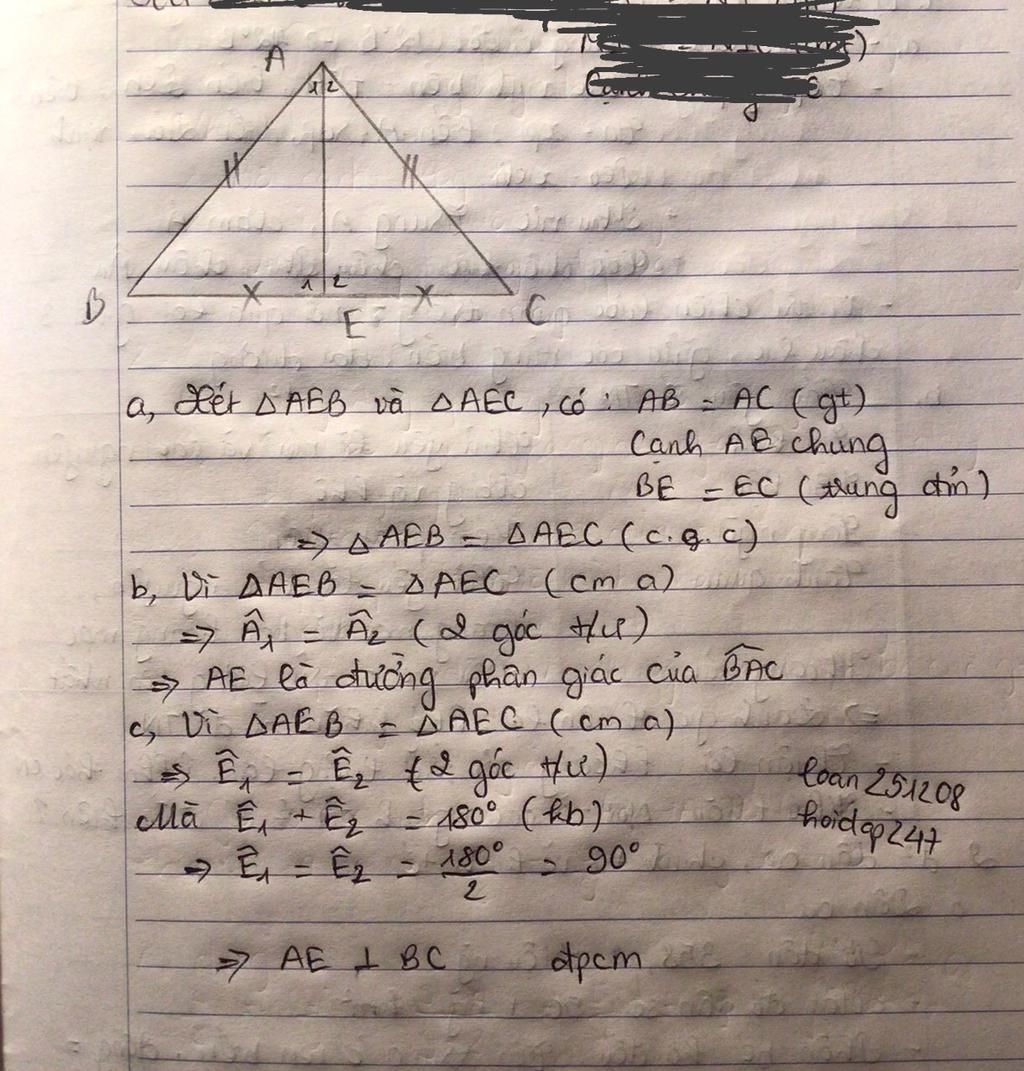 A
1 2
1 2
B
E
C
a, Xét △AEB và △AEC, có : AB = AC (gt)
Cạnh AE chung
BE = EC (trung đ'm)
=> △AEB = △AEC (c.g.c)
b, Vì △AEB = △AEC (cm a)
=> Â₁ = Â₂ (2 góc t/ư)
=> AE là đường phân giác của B̂AC
c, Vì △AEB = △AEC (cm a)
=> Ê₁ = Ê₂ (2 góc t/ư)
Mà Ê₁ + Ê₂ = 180° (kb)
=> Ê₁ = Ê₂ = 180°/2 = 90°
loan251208
hoidap247
=> AE ⊥ BC đpcm